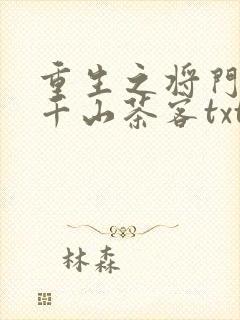 重生之将门
千山茶客txt
林森